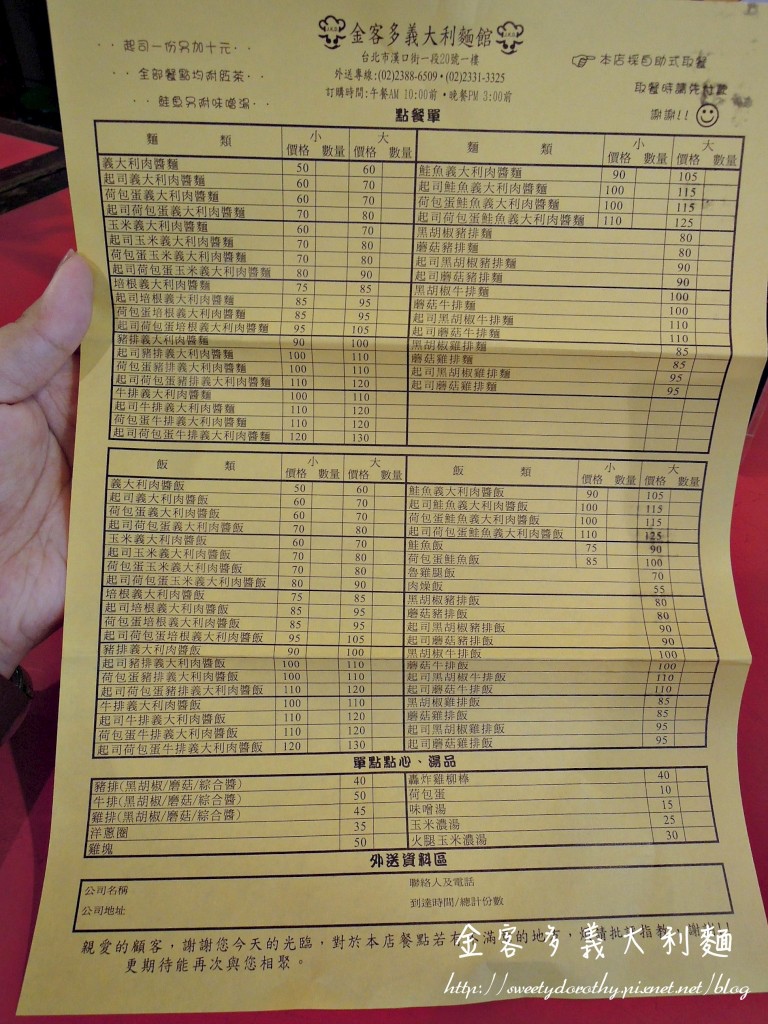 金客多義大利麵館
台北市漢口街一段20號一樓
外送專線:(02)2388-6509•(02)2331-3325
訂購時間:午餐AM 10:00前•晚餐PM 3:00前
‧‧起司一份另加十元‧‧
‧‧全部餐點均附紅茶‧‧
‧‧鮭魚另附味噌湯‧‧
本店採自助式取餐
取餐時請先付款
謝謝!!
點餐單
麵 類 小 大
價格 數量 價格 數量
義大利肉醬麵 50 60
起司義大利肉醬麵 60 70
荷包蛋義大利肉醬麵 60 70
起司荷包蛋義大利肉醬麵 70 80
玉米義大利肉醬麵 60 70
起司玉米義大利肉醬麵 70 80
荷包蛋玉米義大利肉醬麵 70 80
起司荷包蛋玉米義大利肉醬麵 80 90
培根義大利肉醬麵 75 85
起司培根義大利肉醬麵 85 95
荷包蛋培根義大利肉醬麵 85 95
起司荷包蛋培根義大利肉醬麵 95 105
豬排義大利肉醬麵 90 100
起司豬排義大利肉醬麵 100 110
荷包蛋豬排義大利肉醬麵 100 110
起司荷包蛋豬排義大利肉醬麵 110 120
牛排義大利肉醬麵 100 110
起司牛排義大利肉醬麵 110 120
荷包蛋牛排義大利肉醬麵 110 120
起司荷包蛋牛排義大利肉醬麵 120 130
麵 類 小 大
價格 數量 價格 數量
鮭魚義大利肉醬麵 90 105
起司鮭魚義大利肉醬麵 100 115
荷包蛋鮭魚義大利肉醬麵 100 115
起司荷包蛋鮭魚義大利肉醬麵 110 125
黑胡椒豬排麵 80
蘑菇豬排麵 80
起司黑胡椒豬排麵 90
起司蘑菇豬排麵 90
黑胡椒牛排麵 100
蘑菇牛排麵 100
起司黑胡椒牛排麵 110
起司蘑菇牛排麵 110
黑胡椒雞排麵 85
蘑菇雞排麵 85
起司黑胡椒雞排麵 95
起司蘑菇雞排麵 95
飯 類 小 大
價格 數量 價格 數量
義大利肉醬飯 50 60
起司義大利肉醬飯 60 70
荷包蛋義大利肉醬飯 60 70
起司荷包蛋義大利肉醬飯 70 80
玉米義大利肉醬飯 60 70
起司玉米義大利肉醬飯 70 80
荷包蛋玉米義大利肉醬飯 70 80
起司荷包蛋玉米義大利肉醬飯 80 90
培根義大利肉醬飯 75 85
起司培根義大利肉醬飯 85 95
荷包蛋培根義大利肉醬飯 85 95
起司荷包蛋培根義大利肉醬飯 95 105
豬排義大利肉醬飯 90 100
起司豬排義大利肉醬飯 100 110
荷包蛋豬排義大利肉醬飯 100 110
起司荷包蛋豬排義大利肉醬飯 110 120
牛排義大利肉醬飯 100 110
起司牛排義大利肉醬飯 110 120
荷包蛋牛排義大利肉醬飯 110 120
起司荷包蛋牛排義大利肉醬飯 120 130
飯 類 小 大
價格 數量 價格 數量
鮭魚義大利肉醬飯 90 105
起司鮭魚義大利肉醬飯 100 115
荷包蛋鮭魚義大利肉醬飯 100 115
起司荷包蛋鮭魚義大利肉醬飯 110 125
鮭魚飯 75 90
荷包蛋鮭魚飯 85 100
魯雞腿飯 70
肉燥飯 55
黑胡椒豬排飯 80
蘑菇豬排飯 80
起司黑胡椒豬排飯 90
起司蘑菇豬排飯 90
黑胡椒牛排飯 100
蘑菇牛排飯 100
起司黑胡椒牛排飯 110
起司蘑菇牛排飯 110
黑胡椒雞排飯 85
蘑菇雞排飯 85
起司黑胡椒雞排飯 95
起司蘑菇雞排飯 95
單點點心、湯品
豬排(黑胡椒/蘑菇/綜合醬) 40
牛排(黑胡椒/蘑菇/綜合醬) 50
雞排(黑胡椒/蘑菇/綜合醬) 45
洋蔥圈 35
雞塊 50
轟炸雞柳棒 40
荷包蛋 10
味噌湯 15
玉米濃湯 25
火腿玉米濃湯 30
外送資料區
公司名稱 聯絡人及電話
公司地址 到達時間/總計份數
親愛的顧客，謝謝您今天的光臨，對於本店餐點若有 滿 的地 ， 請批評指教，謝謝!!
更期待能再次與您相聚。
金客多義大利麵
http://sweetydorothy.pixnet.net/blog